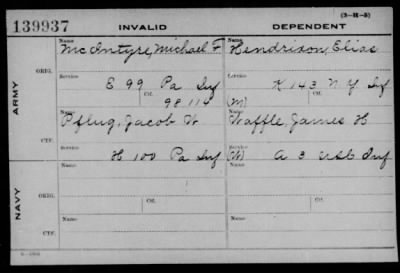 (3-H-5)
139937 INVALID DEPENDENT
ARMY
NAVY
Name McIntyre, Michael F Name Hendrixon, Elias
ORIG. Service E 99 Pa Inf Ctf. Service K 143 N Y Inf Ctf.
98 114 (M)
Name Pflug, Jacob W Name Waffle, James H
CTF. Service H 100 Pa Inf Service (W) A 3 USC Inf
Name Name
ORIG. Service Ctf. Service Ctf.
Name Name
CTF.